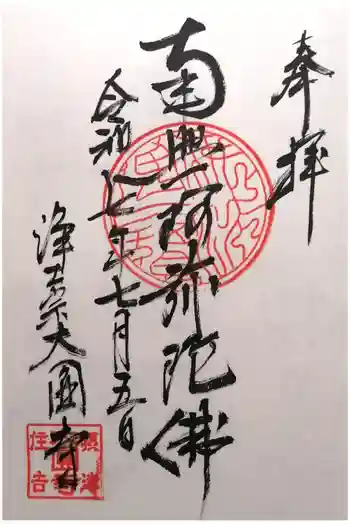 奉拝
南無阿弥陀佛
令和七年七月五日
浄土宗大圓寺
住吉